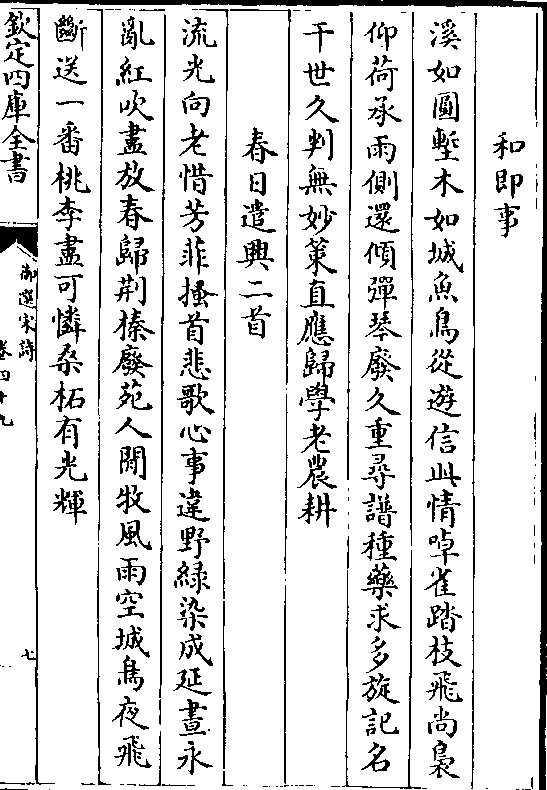 和即事
溪如圓塹木如城魚鳥從遊信此情啅雀踏枝飛尚裊
仰荷承雨側還傾彈琴廢久重尋譜種藥求多旋記名
干世久判無妙策直應歸學老農耕
春日遣興二首
流光向老惜芳菲搔首悲歌心事違野綠染成延晝永
亂紅吹盡放春歸荆榛廢苑人閒牧風雨空城烏夜飛
斷送一番桃李盡可憐桑柘有光輝
欽定四庫全書
御選宋詩
卷四十九
七